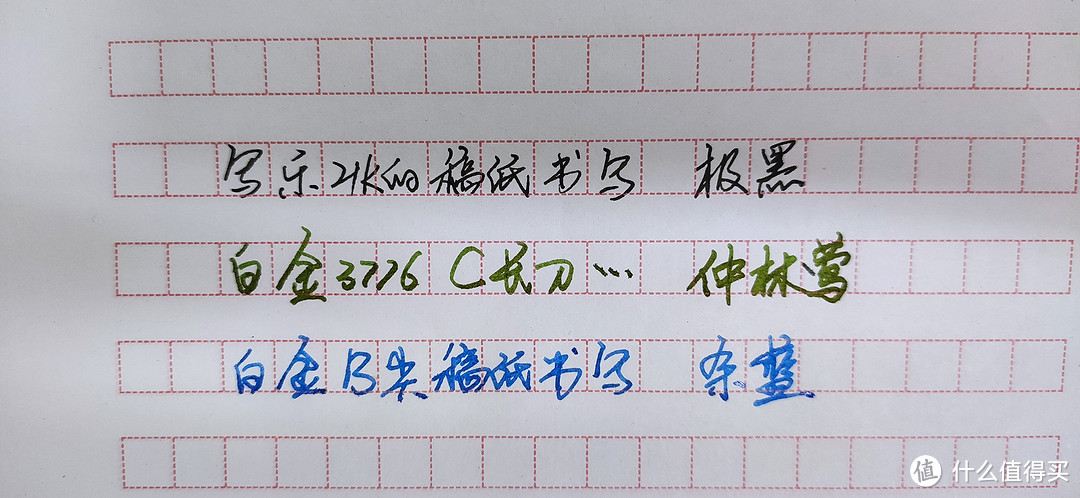 写乐21K的稿纸书写 极黑
白金3776 C长刀… 仲林莺
白金B尖稿纸书写 杂蓝
值 什么值得买